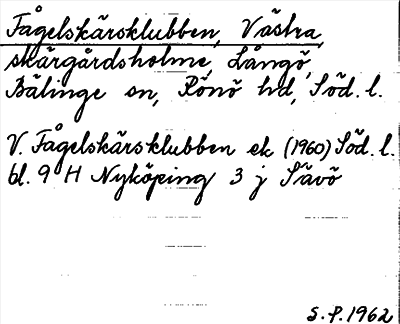 Fågelskärsklubben, Västra,
skärgårdsholme, Långö,
Bälinge sn, Rönö hd, Söd. l.
V. Fågelskärsklubben ek (1960) Söd. l.
bl. 9 H Nyköping 3 j Sävö
S. P. 1962